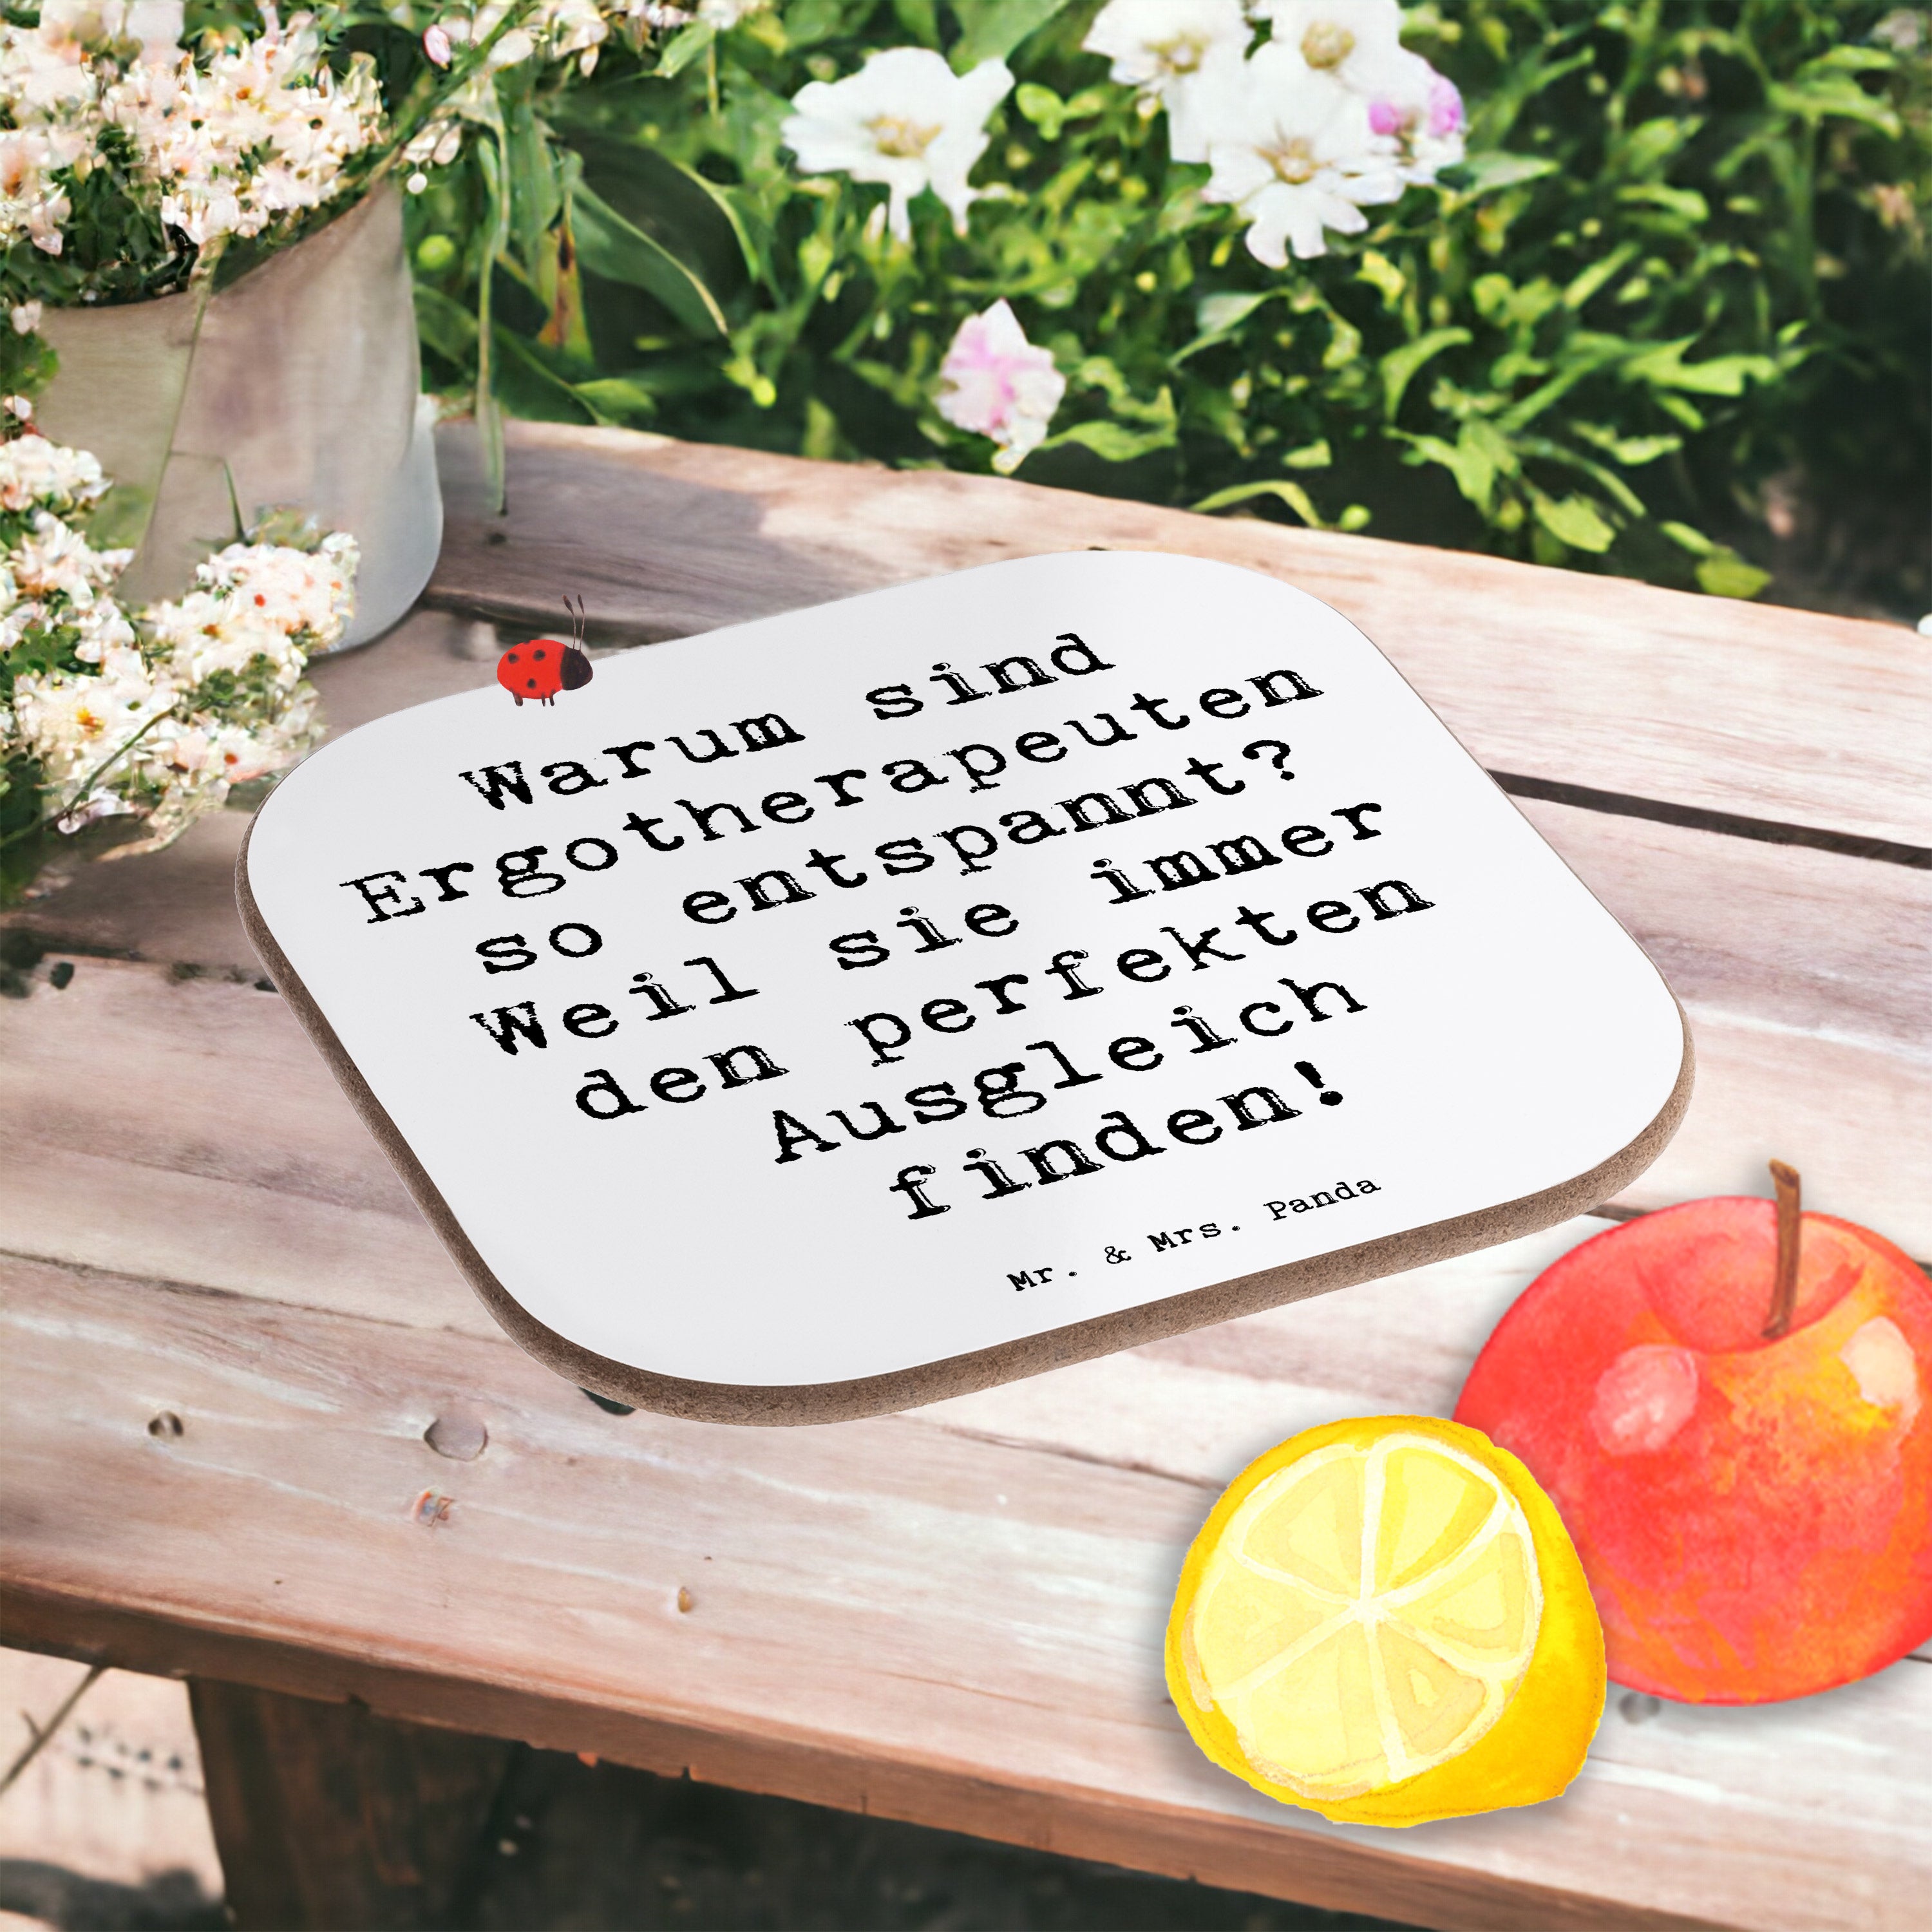 Warum sind
Ergotherapeuten
so entspannt?
Weil sie immer
den perfekten
Ausgleich
finden!
Mr. & Mrs. Panda